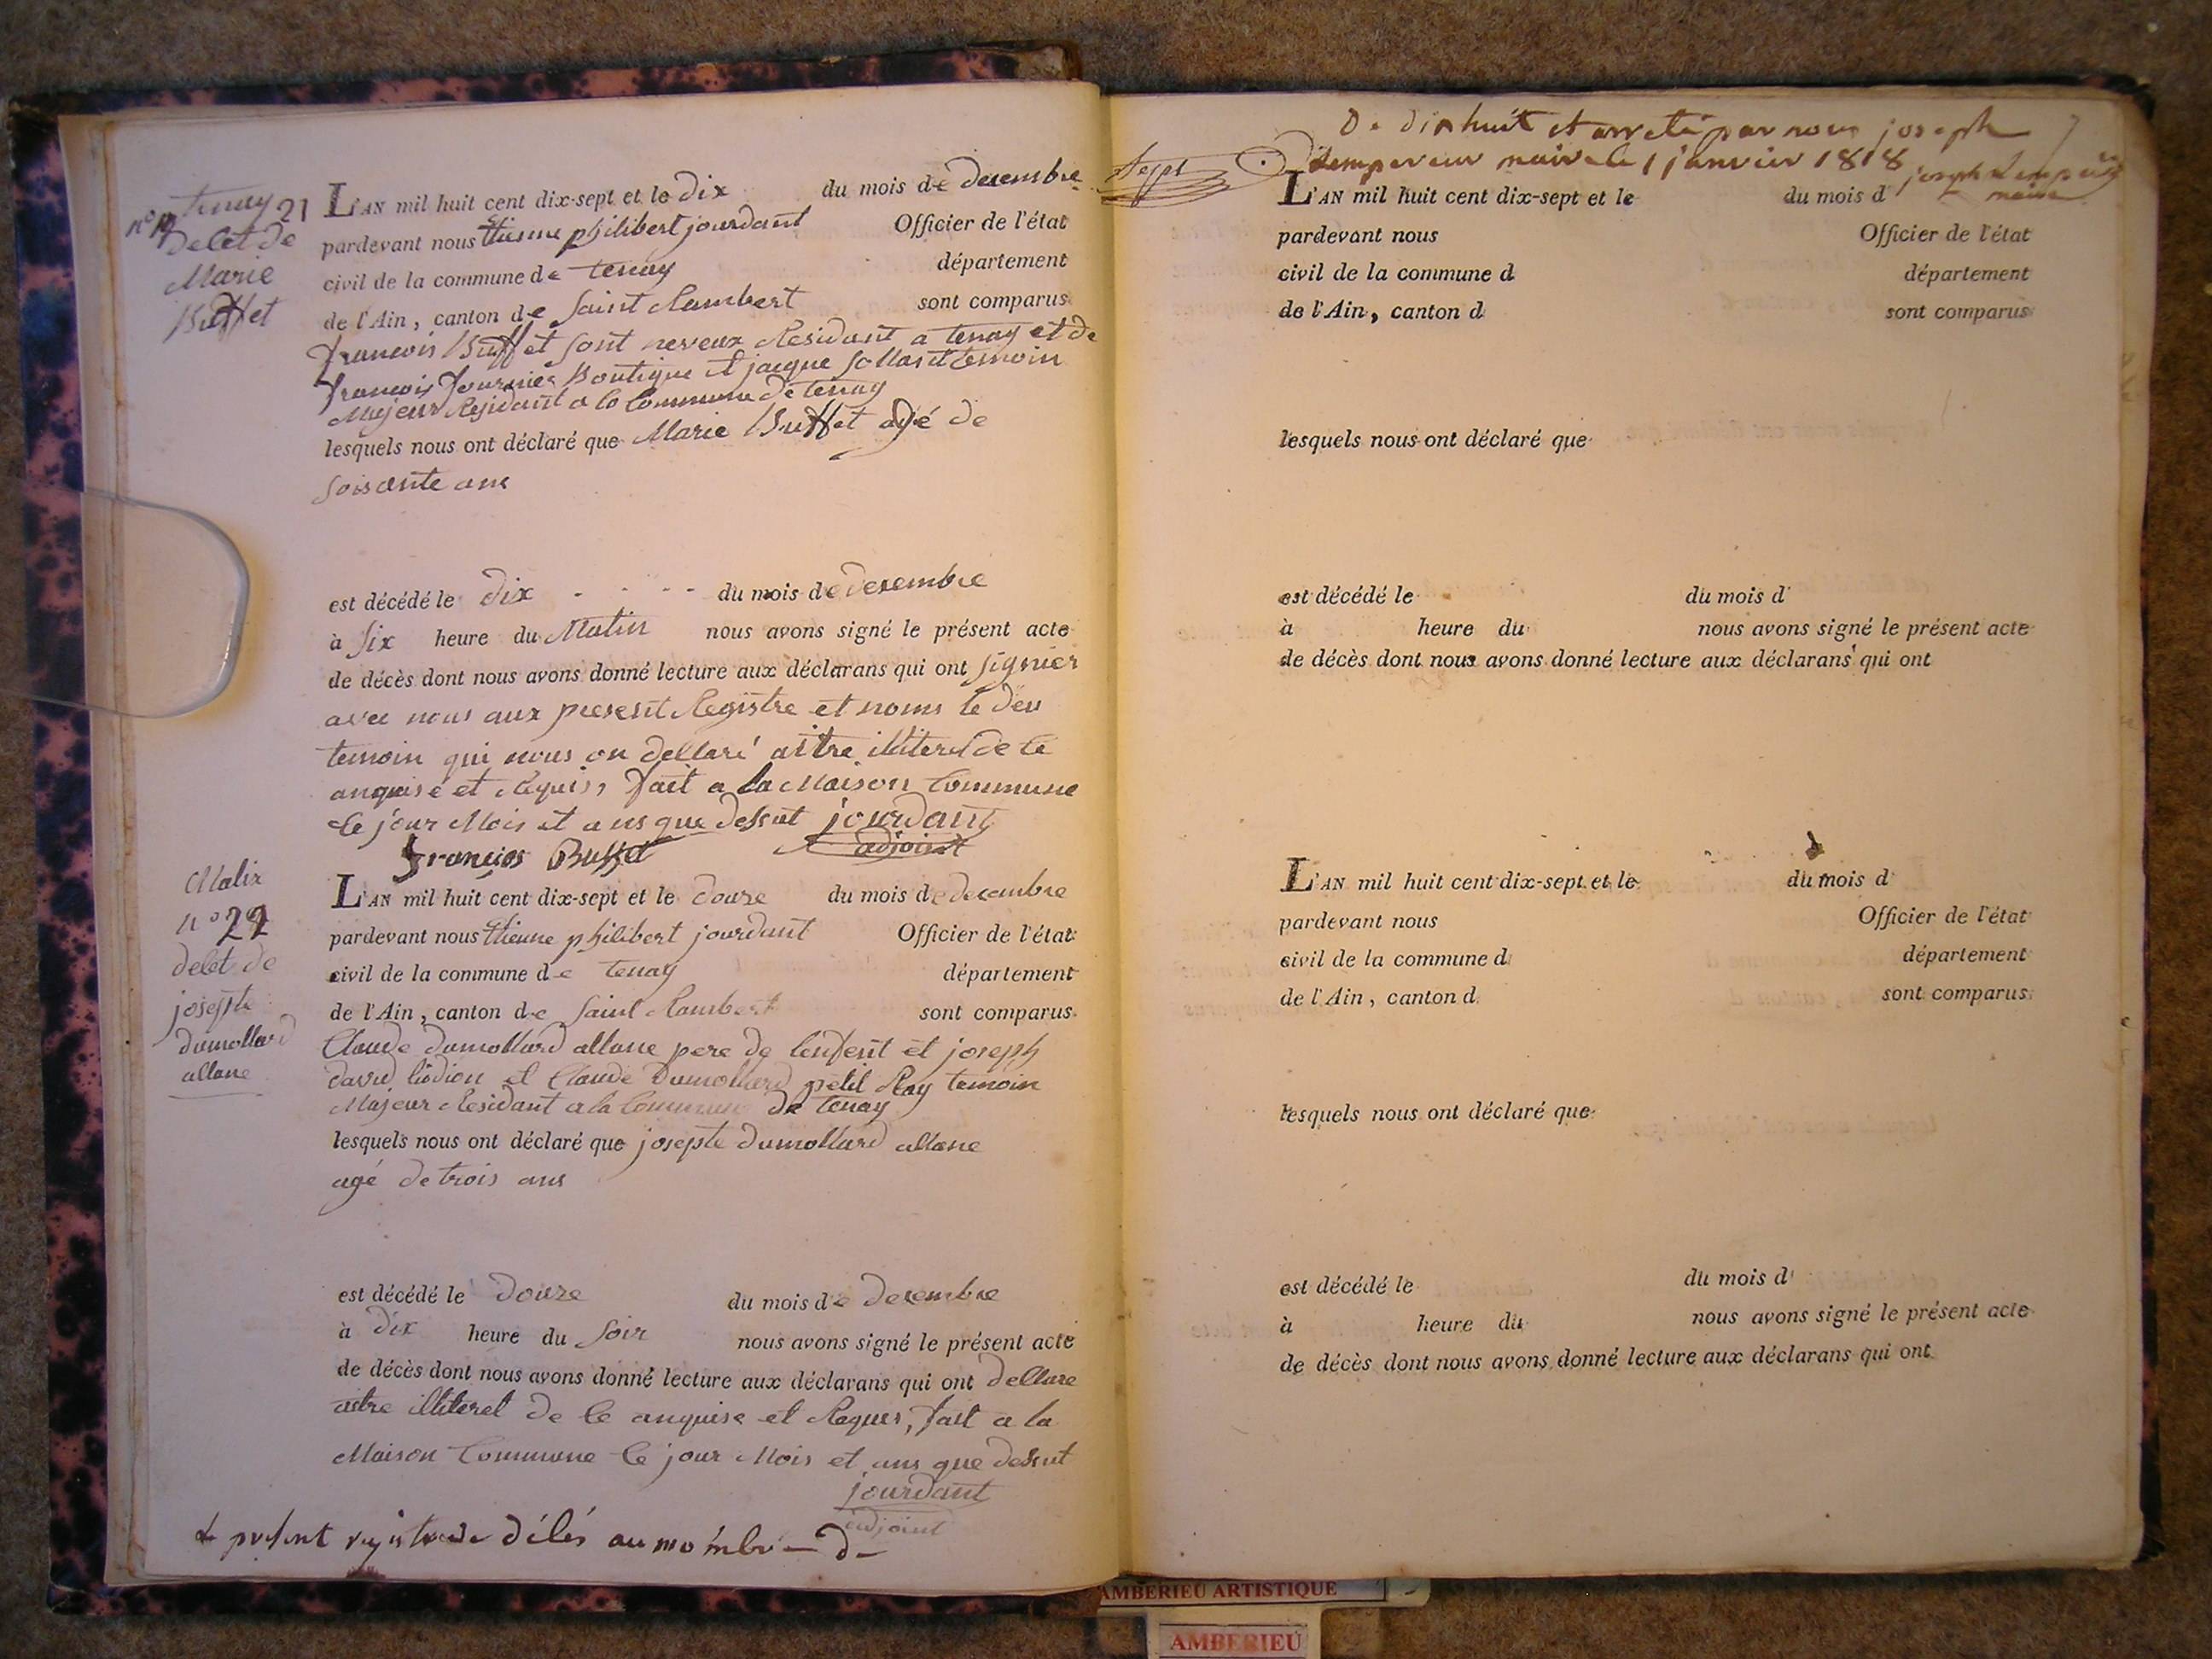 tenay
n° 21
Decet de
Marie
Buffet
L'AN mil huit cent dix-sept et le dix du mois de decembre
pardevant nous Etienne philibert jourdant Officier de l'état
civil de la commune de tenay département
de l'Ain, canton de Saint Rambert sont comparus
francois Buffet sont neveux Residant a tenay et de
francois fournier Boutique et jacque temoin
Majeur Residant a la Commune De tenay
lesquels nous ont déclaré que Marie Buffet agé de
soisante ans
est décédé le dix - - - - du mois de decembre
à six heure du Matin nous avons signé le présent acte
de décès dont nous avons donné lecture aux déclarans qui ont signier
avec nous aux present Registre et noms le deu
temoin qui nous on dellaré aitre illiteret de ce
anquise et Requis, fait a la Maison Commune
le jour Mois et ans que dessut jourdant
françois Buffet adjoint
Malix
n° 22
decet de
josepte
dumollard
allane
L'AN mil huit cent dix-sept et le douze du mois de decembre
pardevant nous Etienne philibert jourdant Officier de l'état
civil de la commune de tenay département
de l'Ain, canton de Saint Rambert sont comparus
Claude dumollard allane pere de lenfent et joseph
david et Claude Dumollard petit Ray temoin
Majeur Residant a la Commune de tenay
lesquels nous ont déclaré que josepte dumollard allane
agé de trois ans
est décédé le Douze du mois de Decembre
à dix heure du Soir nous avons signé le présent acte
de décès dont nous avons donné lecture aux déclarans qui ont dellare
aitre illiteret de ce anquise et Raques, fait a la
Maison Commune le jour Mois et ans que dessut
jourdant
adjoint
le présent registre de délés au nombre d-
De dixhuit et arreté par nous joseph
Lempereur maire le 1 janvier 1818
joseph Lempereur
maire
sept
L'AN mil huit cent dix-sept et le du mois d
pardevant nous Officier de l'état
civil de la commune d département
de l'Ain, canton d sont comparus
lesquels nous ont déclaré que
est décédé le du mois d
à heure du nous avons signé le présent acte
de décès dont nous avons donné lecture aux déclarans qui ont
L'AN mil huit cent dix-sept et le du mois d
pardevant nous Officier de l'état
civil de la commune d département
de l'Ain, canton d sont comparus
lesquels nous ont déclaré que
est décédé le du mois d
à heure du nous avons signé le présent acte
de décès dont nous avons donné lecture aux déclarans qui ont
AMBERIEU ARTISTIQUE
AMBERIEU